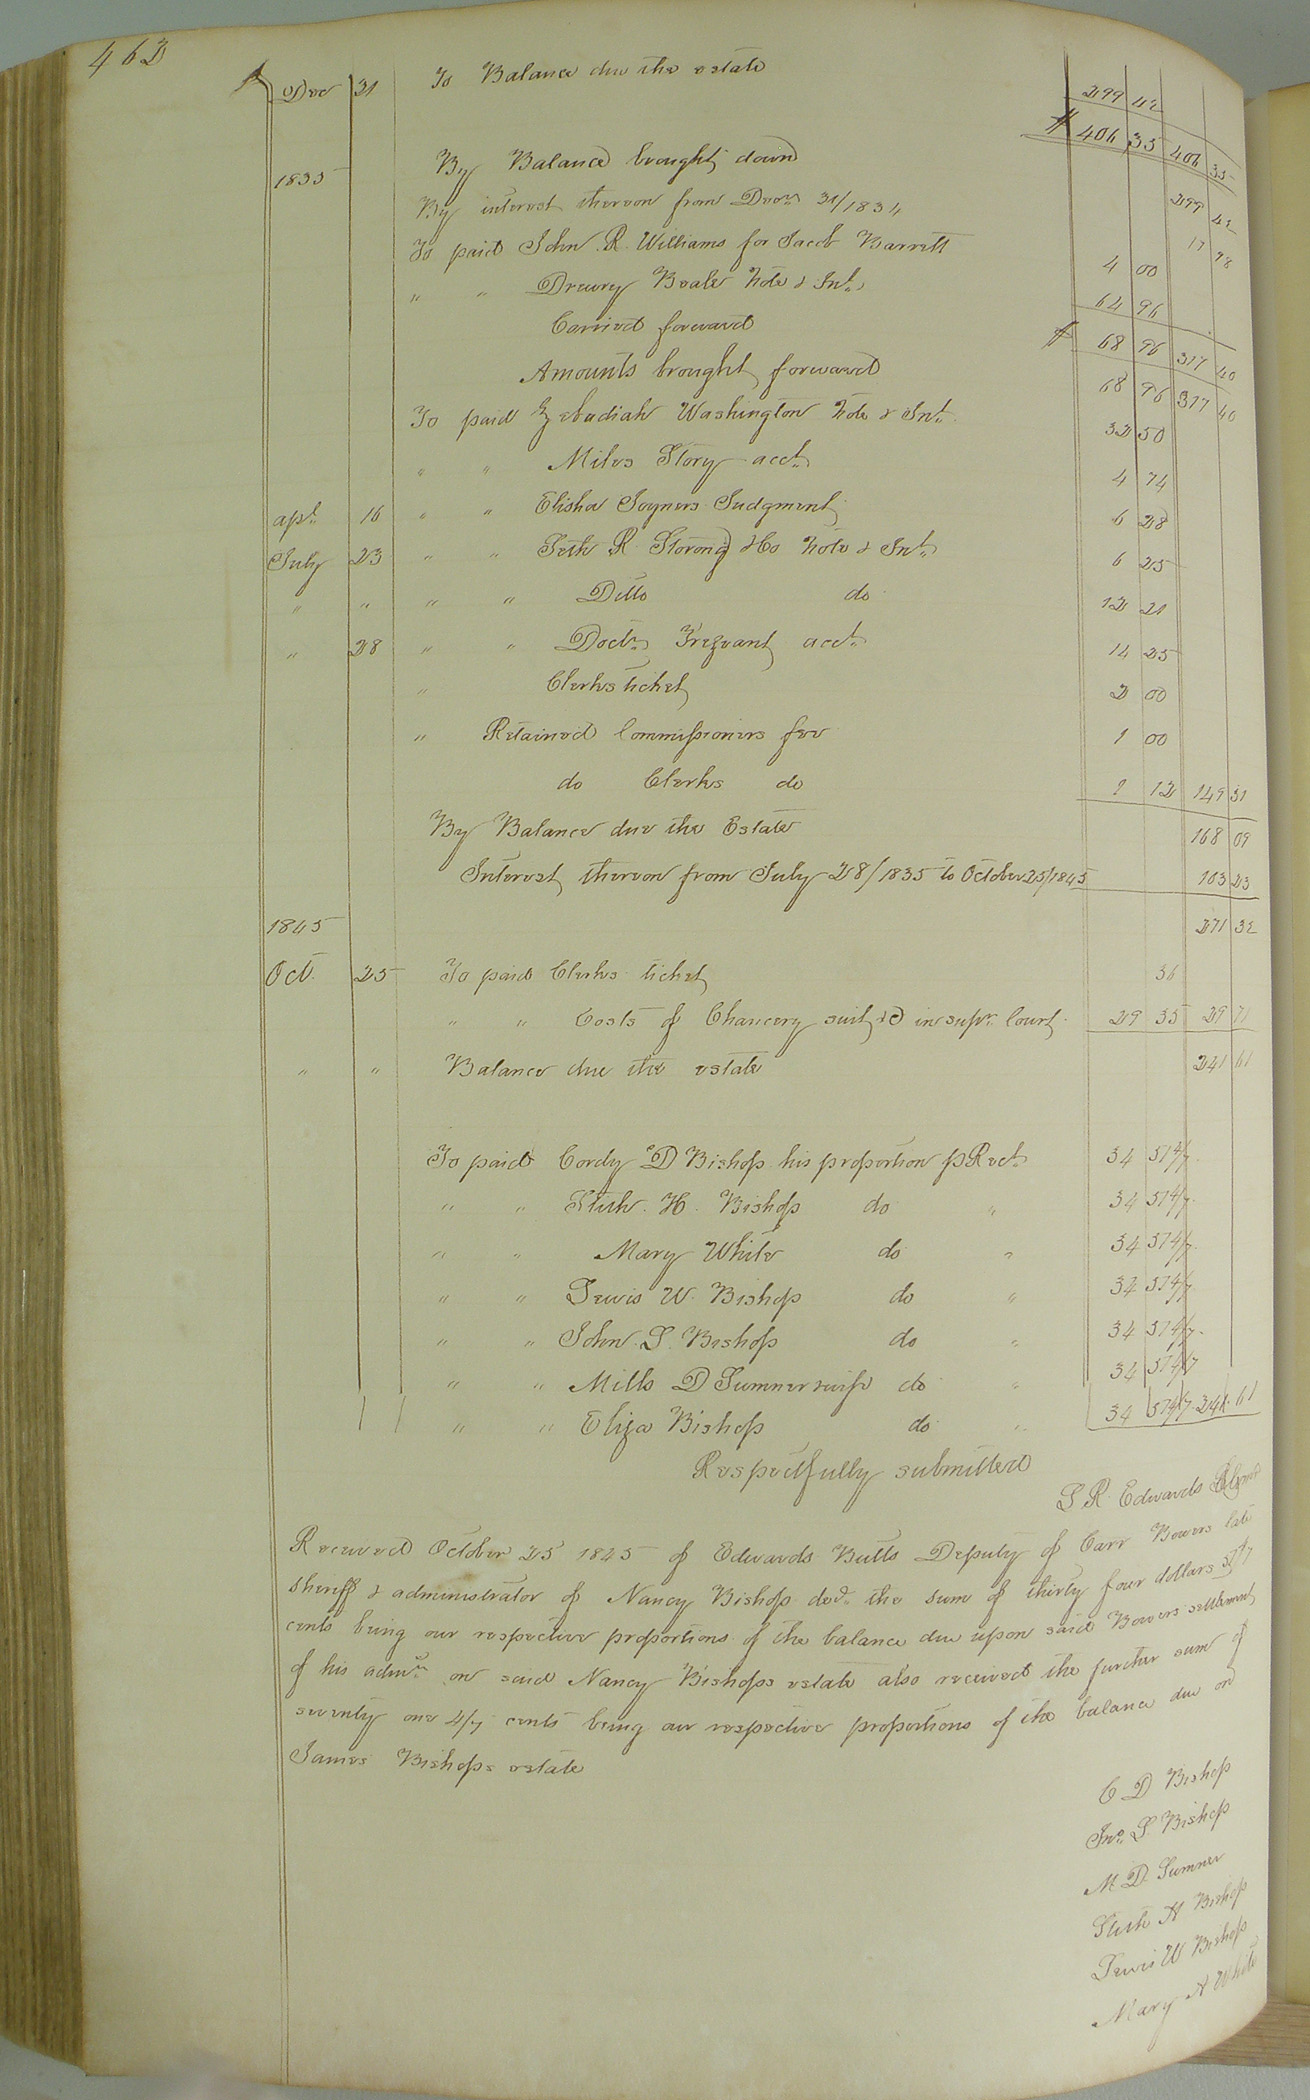 462
Dec 31 To Balance due the estate 299 42
$ 406 35 406 35
1835 By Balance brought down 299 42
By interest thereon from Decr. 31/1834 17 98
To paid John R. Williams for Jacob Barrett 4 00
" " Drewry Beale Note & Int. 64 96
Carried forward $ 68 96 317 40
Amounts brought forward 68 96 317 40
To paid Zebadiah Washington Note & Int. 32 50
" " Miles Story acct. 4 74
apl. 16 " " Elisha Joyners Judgment 6 28
July 23 " " Seth R. & Co Note & Int. 6 25
" " " " Ditto do 12 21
" 28 " " Doctr. Trezvant acct. 14 25
" Clerks ticket 2 00
" Retained Commissioners fee 1 00
do Clerks do 1 12 149 31
By Balance due the Estate 168 09
Interest thereon from July 28/1835 to October 25/1845 103 23
1845 271 32
Oct. 25 To paid Clerks ticket 36
" " Costs of Chancery suit &c in supr. Court 29 35 29 71
" " Balance due the estate 241 61
To paid Cordy D Bishop his proportion p Rect. 34 51 4/7
" " Stith. H. Bishop do " 34 51 4/7
" " Mary White do " 34 51 4/7
" " Lewis W. Bishop do " 34 51 4/7
" " John. S. Bishop do " 34 51 4/7
" " Mills D Sumner wife do " 34 51 4/7
" " Eliza Bishop do " 34 51 4/7 241. 61
Respectfully submitted
S R. Edwards
Received October 25 1845 of Edwards Butts Deputy of Carr Bowers late
sheriff & administrator of Nancy Bishop decd. the sum of thirty four dollars 51 4/7
cents being our respective proportions of the balance due upon said Bowers settlement
of his admn. on said Nancy Bishops estate also received the further sum of
seventy one 4/7 cents being our respective proportions of the balance due on
James Bishops estate
C D Bishop
Jno. S. Bishop
M. D. Sumner
Stith H Bishop
Lewis W Bishop
Mary A White